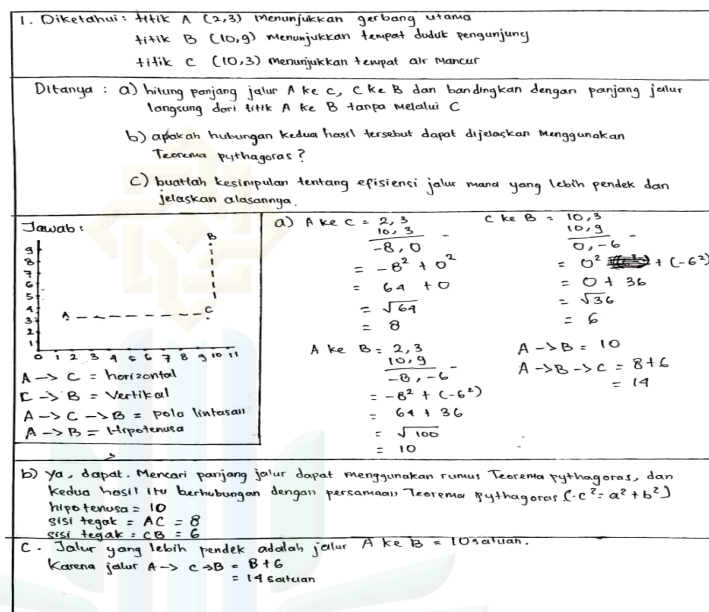 1. Diketahui : titik A (2,3) Menunjukkan gerbang utama
titik B (10,9) menunjukkan tempat duduk pengunjung
titik C (10,3) menunjukkan tempat air Mancur
Ditanya : a) hitung panjang jalur A ke C, C ke B dan bandingkan dengan panjang jalur
langsung dari titik A ke B tanpa Melalui C
b) apakah hubungan kedua hasil tersebut dapat dijelaskan Menggunakan
Teorema pythagoras?
C) buatlah kesimpulan tentang efisiensi jalur mana yang lebih pendek dan
jelaskan alasannya.
Jawab :
B
9
8
7
6
5
4
3
2
1
A
C
0 1 2 3 4 5 6 7 8 9 10 11
A -> C = horizontal
C -> B = Vertikal
A -> C -> B = pola lintasan
A -> B = Hipotenusa
a) A ke C = 2, 3
10, 3 -
-8, 0
= -8² + 0²
= 64 + 0
= √64
= 8
C ke B = 10, 3
10, 9 -
0, -6
= 0² + (-6²)
= 0 + 36
= √36
= 6
A ke B = 2, 3
10, 9 -
-8, -6
= -8² + (-6²)
= 64 + 36
= √100
= 10
A -> B = 10
A -> B -> C = 8+6
= 14
b) Ya, dapat. Mencari panjang jalur dapat menggunakan rumus Teorema pythagoras, dan
kedua hasil itu berhubungan dengan persamaan Teorema Pythagoras (c² = a² + b²)
hipotenusa = 10
sisi tegak = AC = 8
sisi tegak = CB = 6
C. Jalur yang lebih pendek adalah jalur A ke B = 10 satuan.
Karena jalur A -> C -> B = 8+6
= 14 satuan